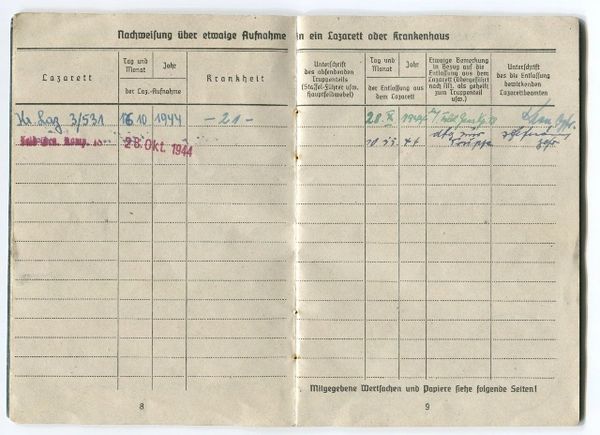 Nachweisung über etwaige Aufnahme in ein Lazarett oder Krankenhaus
Lazarett
Tag und
Monat
Jahr
der Laz.-Aufnahme
Krankheit
Unterschrift
des absendenden
Truppenteils
(Staffel-Führer usw.
Hauptfeldwebel)
Tag und
Monat
Jahr
der Entlassung aus
dem Lazarett
Etwaige Bemerkung
in Bezug auf die
Entlassung aus dem
Lazarett (übergeführt
nach N., als geheilt
zum Truppenteil
usw.)
Unterschrift
des die Entlassung
bewirkenden
Lazarettbeamten
Kr. Laz 3/531
16 10
1944
- 21 -
28. X.
28. Okt. 1944
Mitgegebene Wertsachen und Papiere siehe folgende Seiten!
8
9